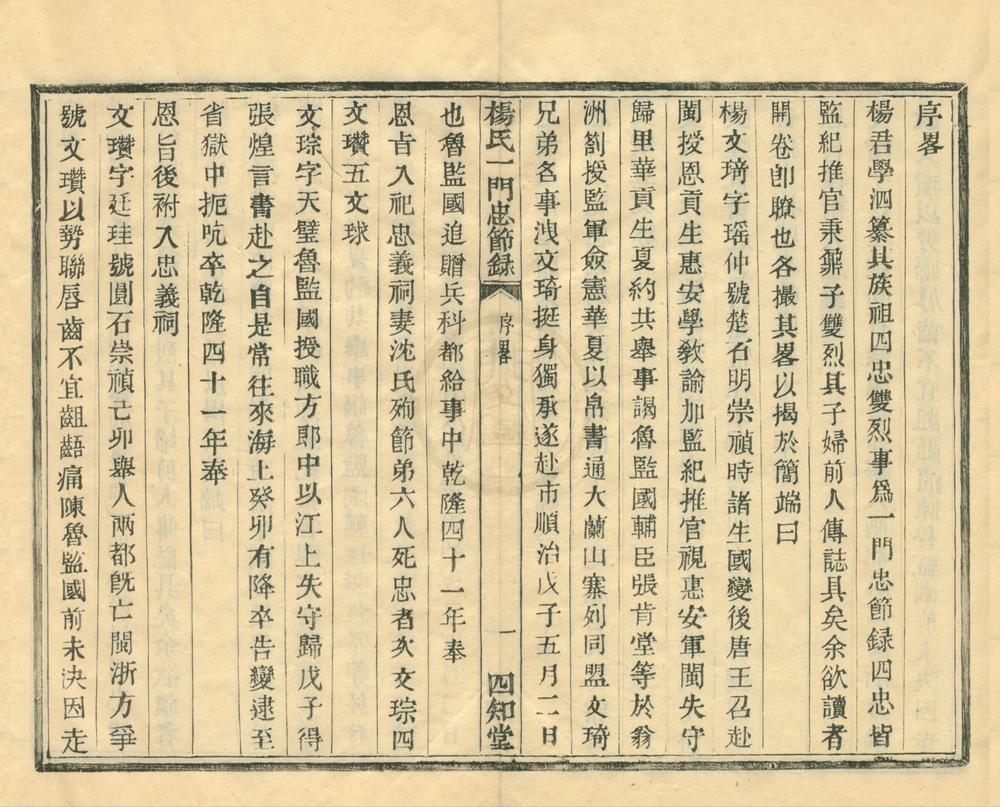 序畧
楊君學泗纂其族祖四忠雙烈事爲一門忠節録四忠皆
監紀推官秉鼐子雙烈其子婦前人傳誌具矣余欲讀者
開卷卽瞭也各撮其畧以揭於簡端曰
楊文琦字瑶仲號楚石明崇禎時諸生國變後唐王召赴
閩授恩貢生惠安學敎諭加監紀推官視惠安軍閩失守
歸里華貢生夏約共舉事謁魯監國輔臣張肯堂等於翁
洲劄授監軍僉憲華夏以帛書通大蘭山寨列同盟文琦
兄弟名事洩文琦挺身獨承遂赴市順治戊子五月二日
楊氏一門忠節録 序畧 一 四知堂
也魯監國追贈兵科都給事中乾隆四十一年奉
恩旨入祀忠義祠妻沈氏殉節弟六人死忠者次文琮四
文瓚五文球
文琮字天璧魯監國授職方郎中以江上失守歸戊子得
張煌言書赴之自是常往來海上癸卯有降卒告變逮至
省獄中扼吭卒乾隆四十一年奉
恩旨後祔入忠義祠
文瓚字廷珪號圓石崇禎己卯舉人兩都旣亡閩浙方爭
號文瓚以勢聯唇齒不宜齟齬痛陳魯監國前未決因走